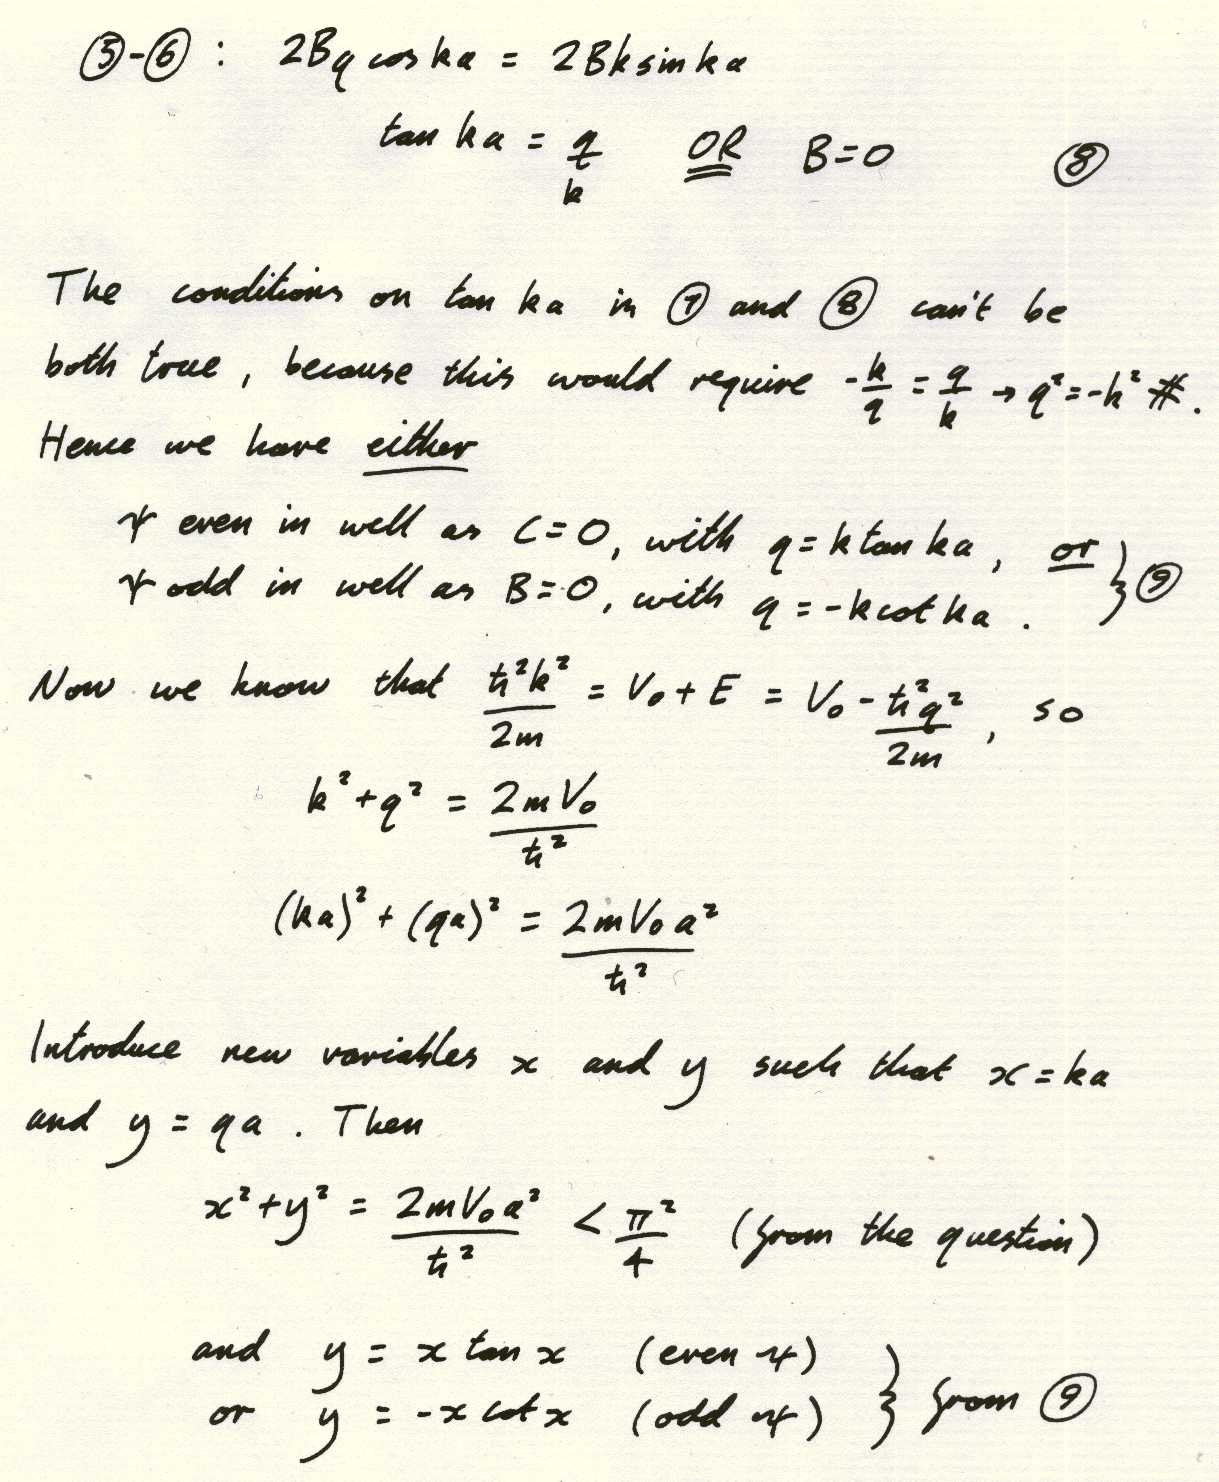 ⑤-⑥ : 2Bq cos ka = 2Bk sin ka
tan ka = q/k OR B=0 ⑧
The conditions on tan ka in ⑦ and ⑧ can't be
both true, because this would require -k/q = q/k → q² = -k² #.
Hence we have either
ψ even in well as C=0, with q = k tan ka, or
ψ odd in well as B=0, with q = -k cot ka. } ⑨
Now we know that ħ²k²/2m = V₀ + E = V₀ - ħ²q²/2m, so
k² + q² = 2mV₀/ħ²
(ka)² + (qa)² = 2mV₀a²/ħ²
Introduce new variables x and y such that x = ka
and y = qa. Then
x² + y² = 2mV₀a²/ħ² < π²/4 (from the question)
and y = x tan x (even ψ)
or y = -x cot x (odd ψ) } from ⑨